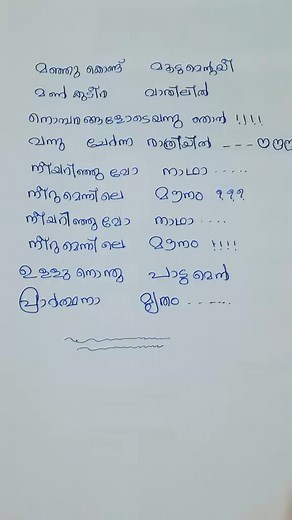 മഞ്ഞു കൊണ്ട് മൂടുമെന്റെയീ
മൺ കുടീര വാതിലിൽ
നൊമ്പരങ്ങളോടെയന്നു ഞാൻ !!!!
വന്നു ചേർന്ന രാത്രിയിൽ ---♡♡♡
നീയറിഞ്ഞു വോ നാഥാ .....
നീറുമെന്നിലെ മൗനം ???
നീയറിഞ്ഞു വോ നാഥാ ....
നീറുമെന്നിലെ മൗനം !!!!
ഉള്ളു നൊന്തു പാടുമെൻ
പ്രാർത്ഥനാ മൃതം ......